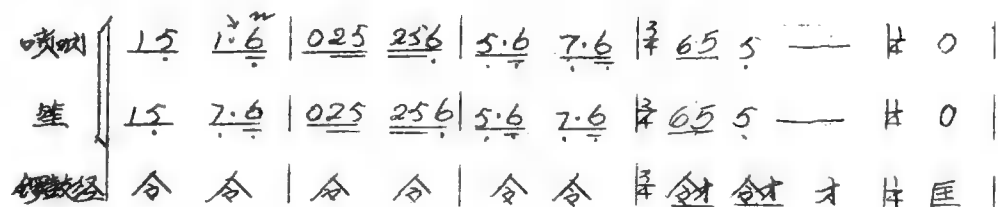 唢呐 1 5 1·6 | 0 2 5 2 5 6 | 5·6 7·6 | 3/4 6 5 5 — | 1/4 0 |
笙 1 5 7·6 | 0 2 5 2 5 6 | 5·6 7·6 | 3/4 6 5 5 — | 1/4 0 |
锣鼓经 令 令 | 令 令 | 令 令 | 3/4 令才 令才 才 | 1/4 匡 |